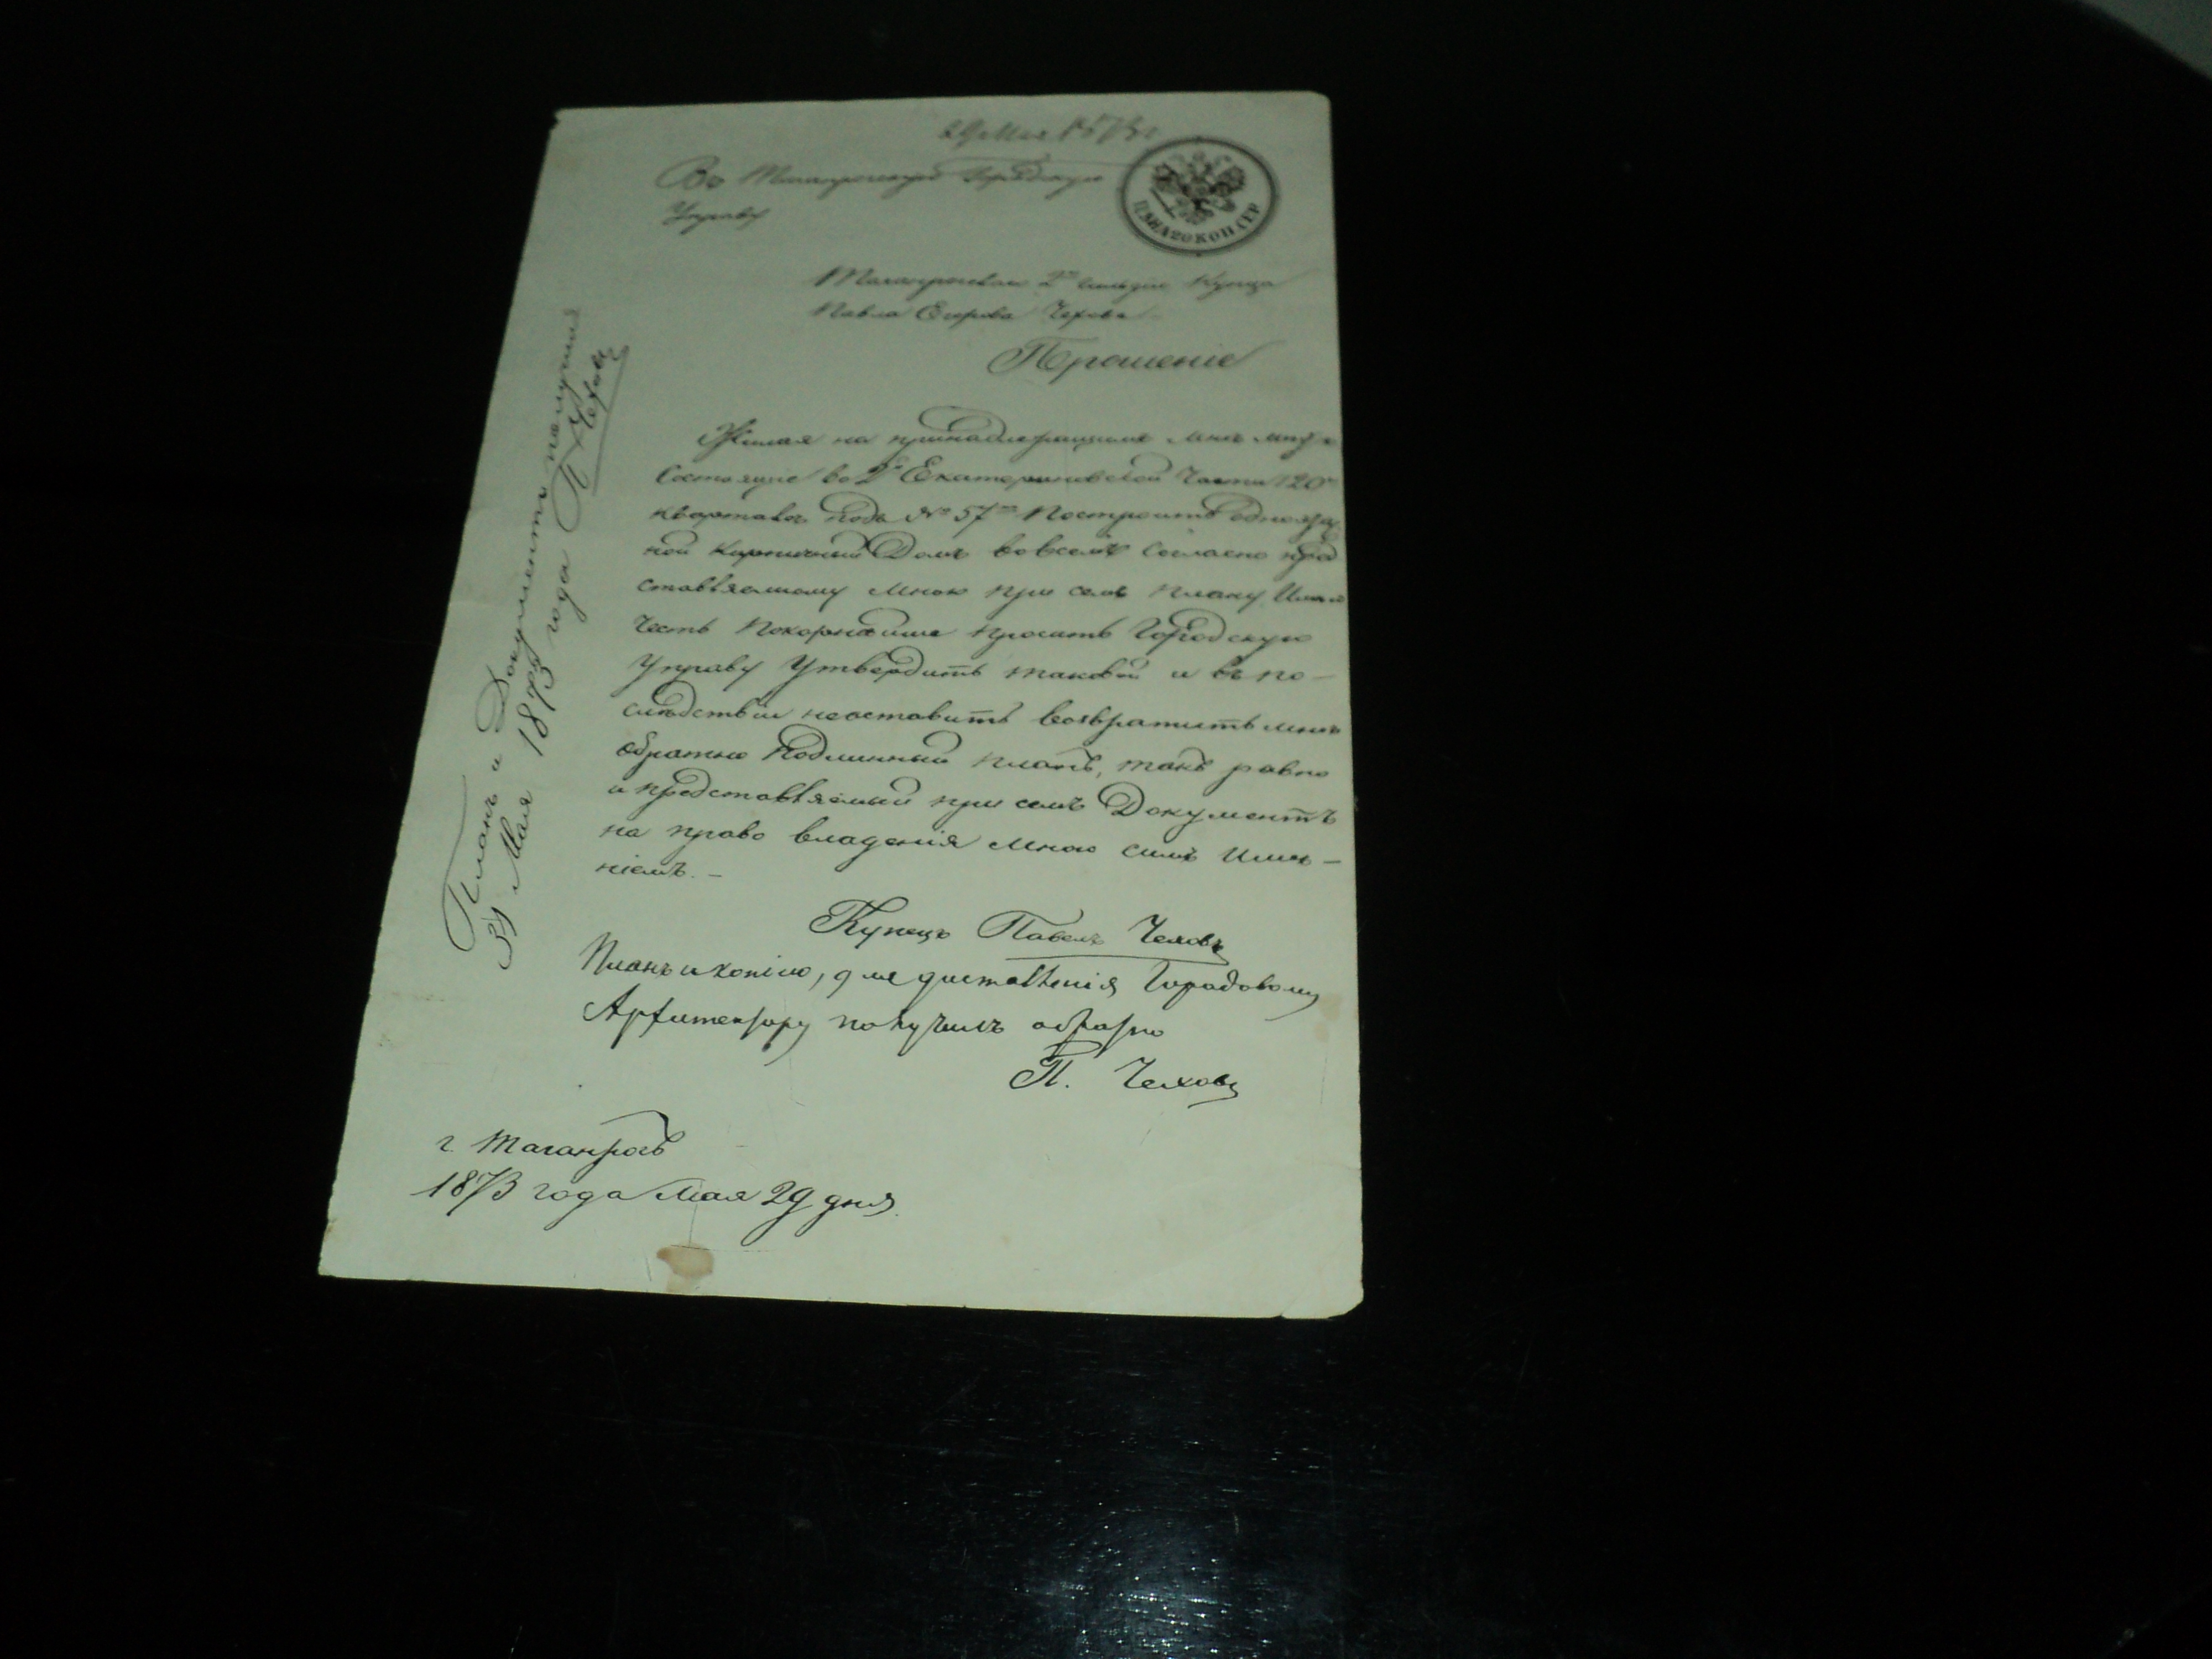 29 Мая 1873 г
Во Таганрогскую Городскую
Управу
ЦѢНА 20 КОП. СЕР.
Таганрогскаго 2й гильдии Купца
Павла Егорова Чехова
Прошеніе
Желая на принадлежащиме мнѣ
Состоящіе во 2й Екатериновской Части 120м
кварталѣ подъ № 57м Построить одноэтаж
ной кирпичный Домъ во всемъ Согласно пред
ставляемому Мною при семъ плану Имѣю
Честь Покорнѣйше просить Городскую
Управу Утвердить таковой и въ по-
слѣдствіи неоставить возвратить мнѣ
обратно Подлинный планъ, такъ равно
и представляемый при семъ Документъ
на право владенія Мною симъ Имѣ-
ніемъ. -
Купецъ Павелъ Чеховъ
Планъ и копію, для доставленія Городовому
Архитектору получилъ обратно
П. Чеховъ
г. Таганрогъ
1873 года Мая 29 дня.
Планъ и Документъ получилъ
31 Мая 1873 года П Чеховъ